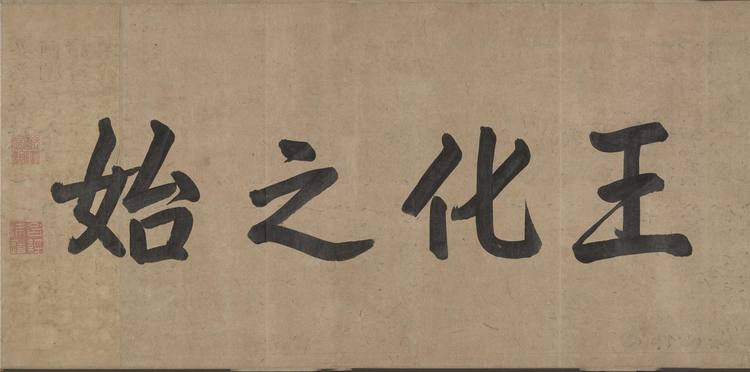 王化之始